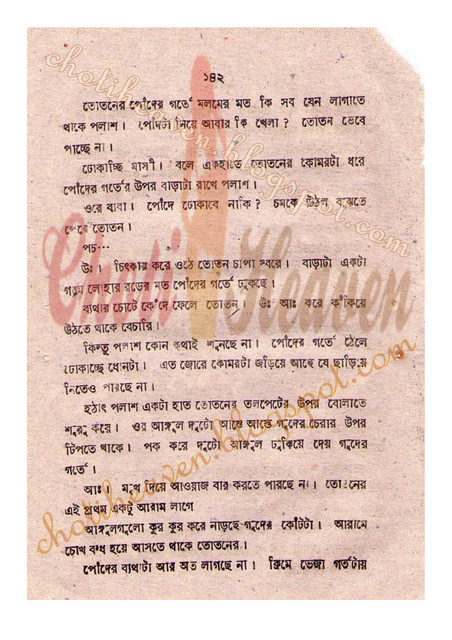 ১৪২
তোতনের পোঁদের গর্তে মলমের মত কি সব যেন লাগাতে
থাকে পলাশ। পোঁদটা নিয়ে আবার কি খেলা? তোতন ভেবে
পাচ্ছে না।
ঢোকাচ্ছি মাসী। বলে একহাতে তোতনের কোমরটা ধরে
পোঁদের গর্তের উপর বাড়াটা রাখে পলাশ।
ওরে বাবা। পোঁদে ঢোকাবে নাকি? চমকে উঠল বুঝতে
পেরে তোতন।
পচ···
উঃ। চিৎকার করে ওঠে তোতন চাপা স্বরে। বাড়াটা একটা
গরম লোহার রডের মত পোঁদের গর্তে ঢুকছে।
ব্যথার চোটে কেঁদে ফেলে তোতন। উঃ আঃ করে কঁকিয়ে
উঠতে থাকে বেচারি।
কিন্তু পলাশ কোন কথাই শুনছে না। পোঁদের গর্তে ঠেলে
ঢোকাচ্ছে ধোনটা। এত জোরে কোমরটা জড়িয়ে আছে যে ছাড়িয়ে
নিতেও পারছে না।
হঠাৎ পলাশ একটা হাত তোতনের তলপেটের উপর বোলাতে
শুরু করে। ওর আঙ্গুল দুটো আস্তে আস্তে গুদের চেরার উপর
টিপতে থাকে। পক করে দুটো আঙ্গুল ঢুকিয়ে দেয় গুদের
গর্তে।
আঃ। মুখ দিয়ে আওয়াজ বার করতে পারছে না। তোতনের
এই প্রথম একটু আরাম লাগে
আঙ্গুলগুলো কুর কুর করে নাড়ছে গুদের কোঁটটা। আরামে
চোখ বন্ধ হয়ে আসতে থাকে তোতনের।
পোঁদের ব্যথাটা আর অত লাগছে না। ক্রিমে ভেজা গর্তটায়
Choti Heaven
chotiheaven.blogspot.com
chotiheaven.blogspot.com